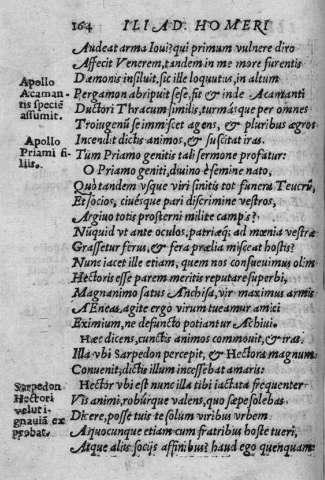 164 ILIAD. HOMERI
Audeat arma Ioui? qui primum vulnere diro
Affecit Venerem, tandem in me more furentis
Dæmonis insiluit, sic ille loquutus, in altum
Pergamon abripuit sese. fit & inde Acamanti
Ductori Thracum similis, turmásque per omnes
Troiugenû se immiscet agens, & pluribus ægros
Incendit dictis animos, & suscitat iras.
Tum Priamo genitis tali sermone profatur:
O Priami geniti, diuino è semine nato,
Quò tandem vsque viri sinitis tot funera Teucrû,
Et socios, ciuésque pari discrimine vestros,
Argiuo totis prosterni milite campis?
Nûquid vt ante oculos, patriæq; ad mœnia vestræ
Grassetur ferus, & fera prælia misceat hostis?
Nunc iacet ille etiam, quem nos consueuimus olim
Hectoris esse parem meritis reputare superbi,
Magnanimo satus Anchisa, vir maximus armis
AEneas, agite ergò virum tueamur amici
Eximium, ne defuncto potiantur Achiui.
Hæc dicens, cunctis animos commouit, & iras.
Illa vbi Sarpedon percepit, & Hectora magnum
Conuenit; dictis illum incessebat amaris:
Hector vbi est nunc illa tibi iactata frequenter
Vis animi, robúrque valens, quo sæpe solebas
Dicere, posse tuis te solum viribus vrbem
A quocunque etiam cum fratribus hoste tueri,
Atque aliis socijs affinibus? haud ego quenquam
Apollo
Acaman-
tis speciê
assumit.
Apollo
Priami fi-
liis.
Sarpedon
Hectori
velut i-
gnauiã ex
probat.